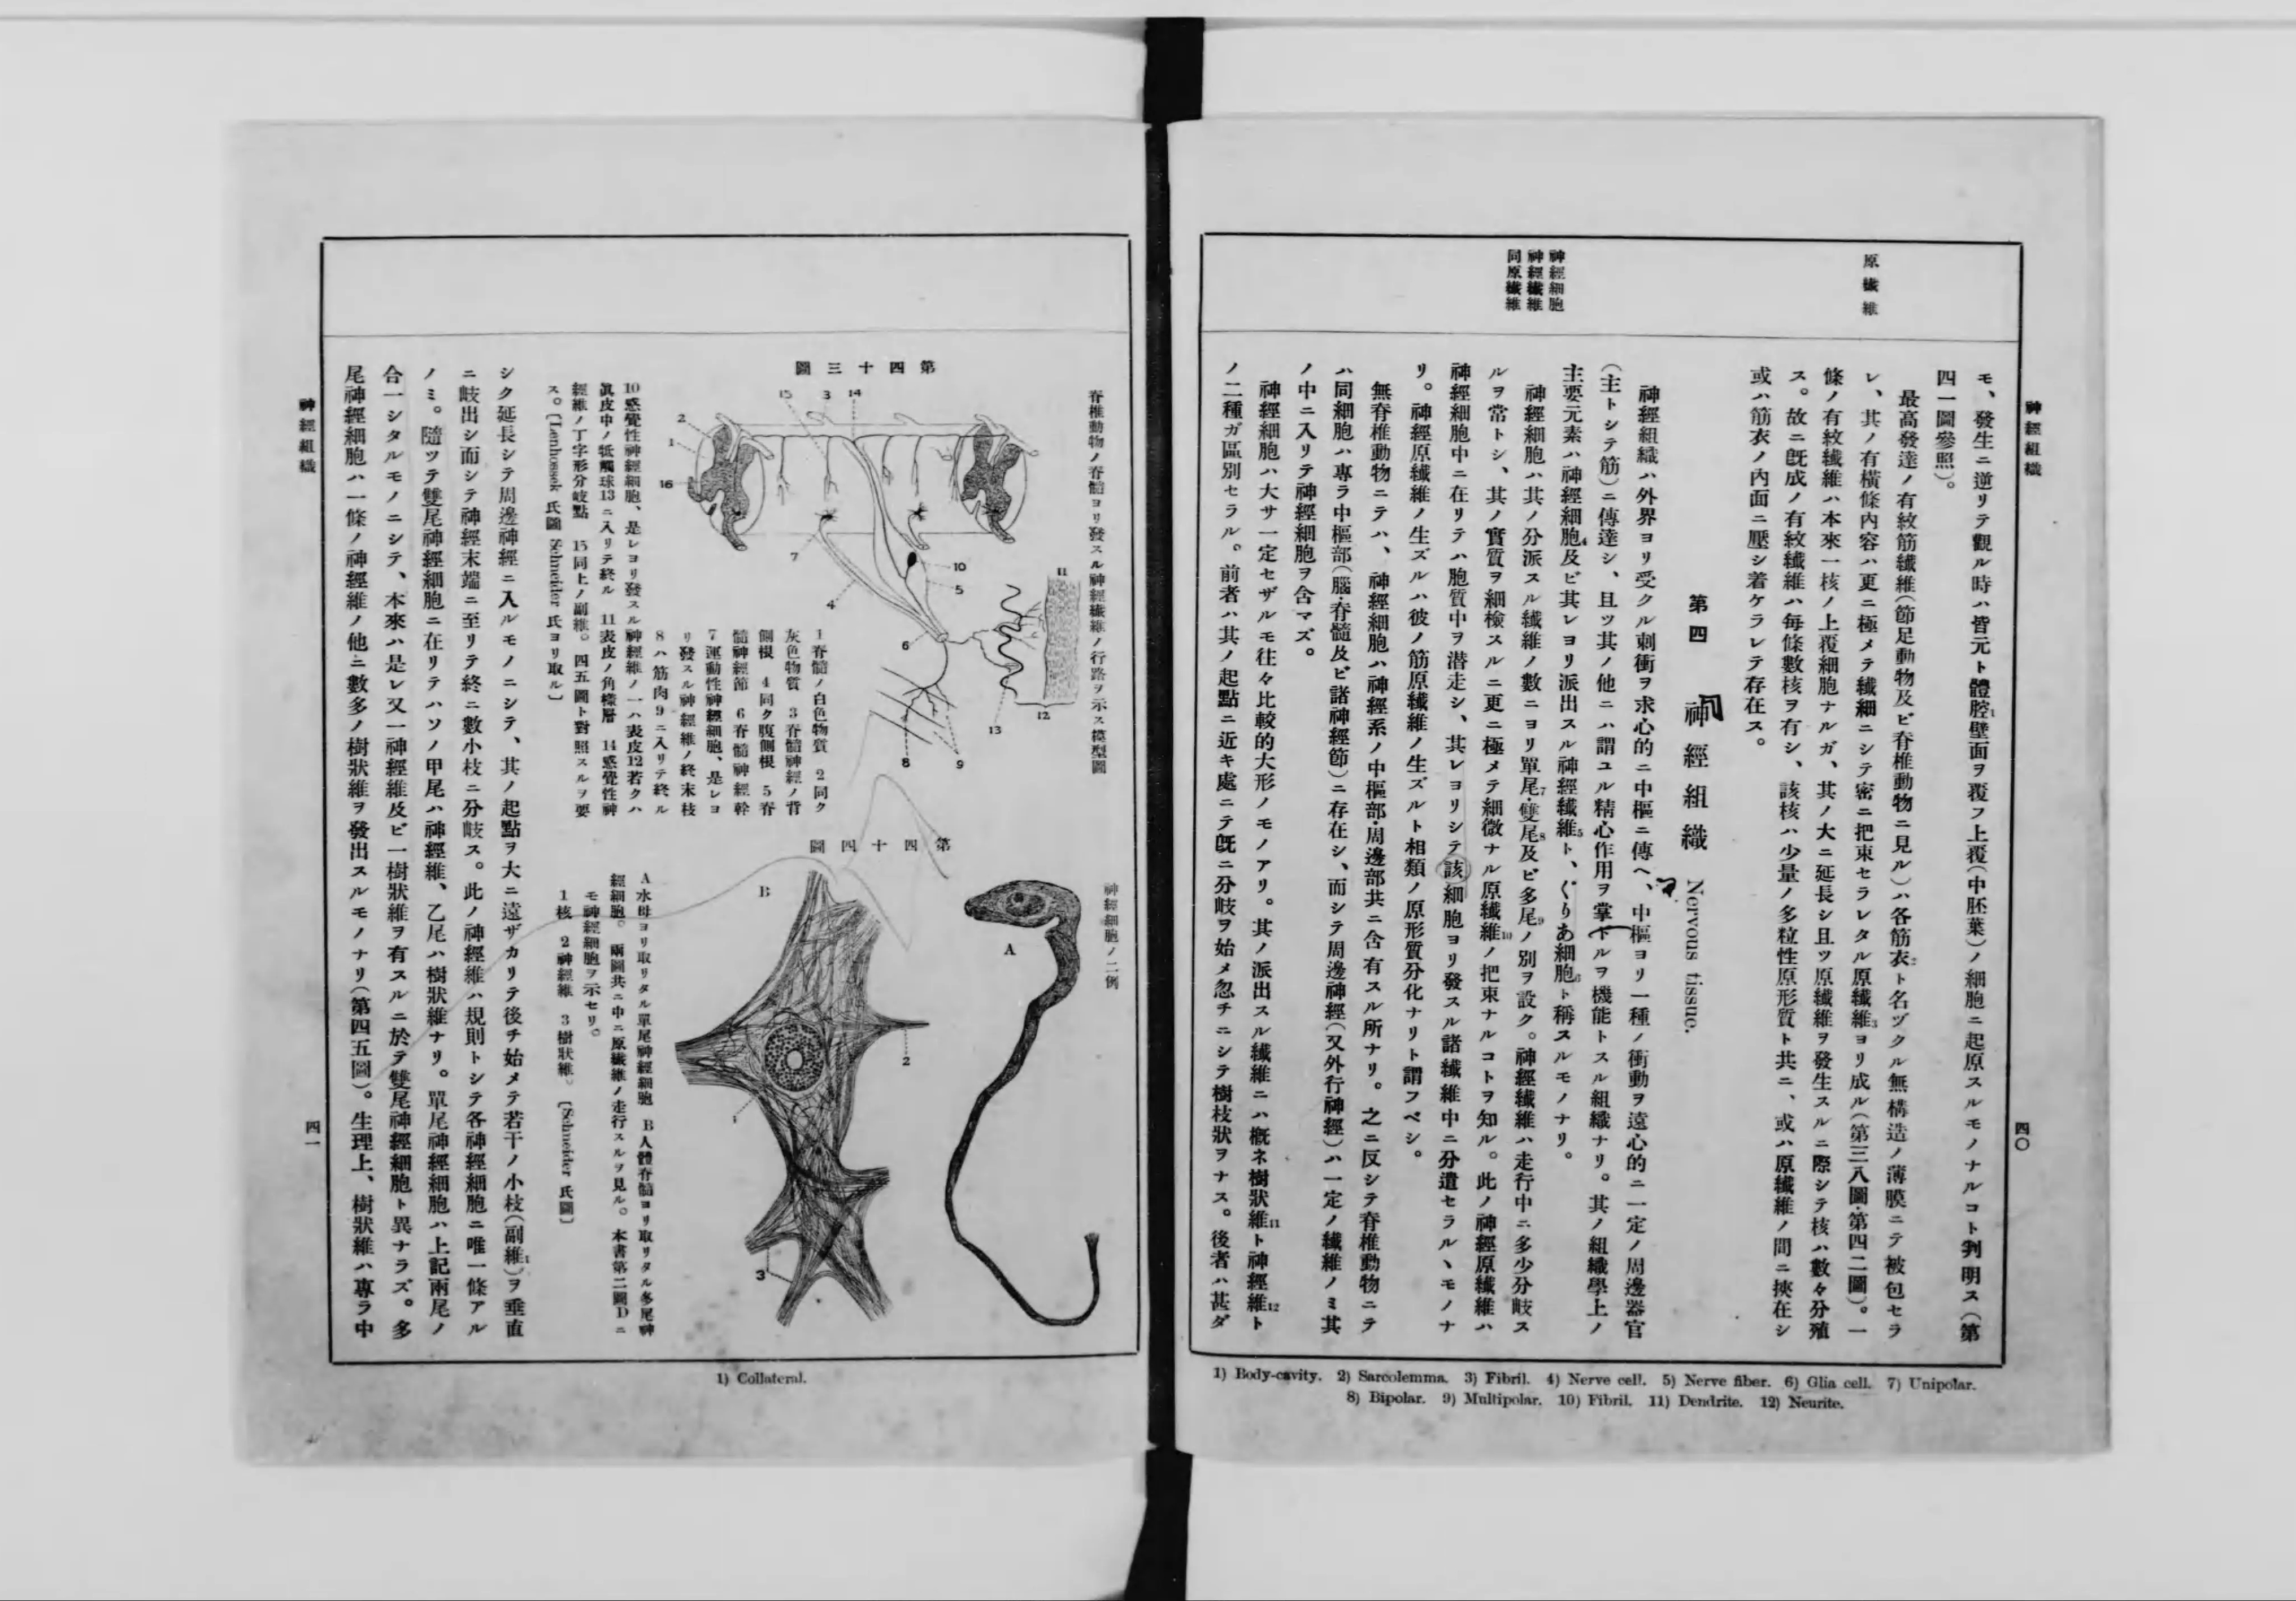 神經組織
四〇
原纎維
神經細胞
神經纎維
同原纎維
モ、發生ニ逆リテ觀ル時ハ皆元ト體腔1壁面ヲ覆フ上覆(中胚葉)ノ細胞ニ起原スルモノナルコト判明ス(第
四一圖參照)。
最高發達ノ有紋筋纎維(節足動物及ビ脊椎動物ニ見ル)ハ各筋衣2ト名ヅクル無構造ノ薄膜ニテ被包セラ
レ、其ノ有橫條內容ハ更ニ極メテ纎細ニシテ密ニ把束セラレタル原纎維3ヨリ成ル(第三八圖・第四二圖)。一
條ノ有紋纎維ハ本來一核ノ上覆細胞ナルガ、其ノ大ニ延長シ且ツ原纎維ヲ發生スルニ際シテ核ハ數々分殖
ス。故ニ旣成ノ有紋纎維ハ每條數核ヲ有シ、該核ハ少量ノ多粒性原形質ト共ニ、或ハ原纎維ノ間ニ挾在シ
或ハ筋衣ノ內面ニ壓シ着ケラレテ存在ス。
第四 神經組織 Nervous tissue.
神經組織ハ外界ヨリ受クル刺衝ヲ求心的ニ中樞ニ傳ヘ、中樞ヨリ一種ノ衝動ヲ遠心的ニ一定ノ周邊器官
(主トシテ筋)ニ傳達シ、且ツ其ノ他ニハ謂ユル精心作用ヲ掌ドルヲ機能トスル組織ナリ。其ノ組織學上ノ
主要元素ハ神經細胞4及ビ其レヨリ派出スル神經纎維5ト、ぐりあ細胞6ト稱スルモノナリ。
神經細胞ハ其ノ分派スル纎維ノ數ニヨリ單尾7・雙尾8及ビ多尾9ノ別ヲ設ク。神經纎維ハ走行中ニ多少分岐ス
ルヲ常トシ、其ノ實質ヲ細檢スルニ更ニ極メテ細微ナル原纎維10ノ把束ナルコトヲ知ル。此ノ神經原纎維ハ
神經細胞中ニ在リテハ胞質中ヲ潜走シ、其レヨリシテ該細胞ヨリ發スル諸纎維中ニ分遣セラルヽモノナ
リ。神經原纎維ノ生ズルハ彼ノ筋原纎維ノ生ズルト相類ノ原形質分化ナリト謂フベシ。
無脊椎動物ニテハ、神經細胞ハ神經系ノ中樞部・周邊部共ニ含有スル所ナリ。之ニ反シテ脊椎動物ニテ
ハ同細胞ハ專ラ中樞部(腦・脊髓及ビ諸神經節)ニ存在シ、而シテ周邊神經(又外行神經)ハ一定ノ纎維ノミ其
ノ中ニ入リテ神經細胞ヲ含マズ。
神經細胞ハ大サ一定セザルモ往々比較的大形ノモノアリ。其ノ派出スル纎維ニハ槪ネ樹狀維11ト神經維12ト
ノ二種ガ區別セラル。前者ハ其ノ起點ニ近キ處ニテ旣ニ分岐ヲ始メ忽チニシテ樹枝狀ヲナス。後者ハ甚ダ
1) Body-cavity. 2) Sarcolemma. 3) Fibril. 4) Nerve cell. 5) Nerve fiber. 6) Glia cell. 7) Unipolar.
8) Bipolar. 9) Multipolar. 10) Fibril. 11) Dendrite. 12) Neurite.
脊椎動物ノ脊髓ヨリ發スル神經纎維ノ行路ヲ示ス模型圖
第四十三圖
15 3 14
2
1
16
7
10
5
4
6
11
12
13
8
9
1脊髓ノ白色物質 2同ク
灰色物質 3脊髓神經ノ背
側根 4同ク腹側根 5脊
髓神經節 6脊髓神經幹
7運動性神經細胞、是レヨ
リ發スル神經維ノ終末枝
8ハ筋肉9ニ入リテ終ル
10感覺性神經細胞、是レヨリ發スル神經維ノ一ハ表皮12若クハ
眞皮中ノ牴觸球13ニ入リテ終ル 11表皮ノ角樣層 14感覺性神
經維ノ丁字形分岐點 15同上ノ副維。 四五圖ト對照スルヲ要
ス。〔Lenhossek 氏圖 Schneider 氏ヨリ取ル〕
神經細胞ノ二例
第四十四圖
A
B
1
2
3
A水母ヨリ取リタル單尾神經細胞 B人體脊髓ヨリ取リタル多尾神
經細胞。 兩圖共ニ中ニ原纎維ノ走行スルヲ見ル。本書第二圖Dニ
モ神經細胞ヲ示セリ。
1核 2神經維 3樹狀維。 〔Schneider 氏圖〕
シク延長シテ周邊神經ニ入ルモノニシテ、其ノ起點ヲ大ニ遠ザカリテ後チ始メテ若干ノ小枝(副維1)ヲ垂直
ニ岐出シ而シテ神經末端ニ至リテ終ニ數小枝ニ分岐ス。此ノ神經維ハ規則トシテ各神經細胞ニ唯一條アル
ノミ。隨ツテ雙尾神經細胞ニ在リテハソノ甲尾ハ神經維、乙尾ハ樹狀維ナリ。單尾神經細胞ハ上記兩尾ノ
合一シタルモノニシテ、本來ハ是レ又一神經維及ビ一樹狀維ヲ有スルニ於テ雙尾神經細胞ト異ナラズ。多
尾神經細胞ハ一條ノ神經維ノ他ニ數多ノ樹狀維ヲ發出スルモノナリ(第四五圖)。生理上、樹狀維ハ專ラ中
1) Collateral.
神經組織
四一